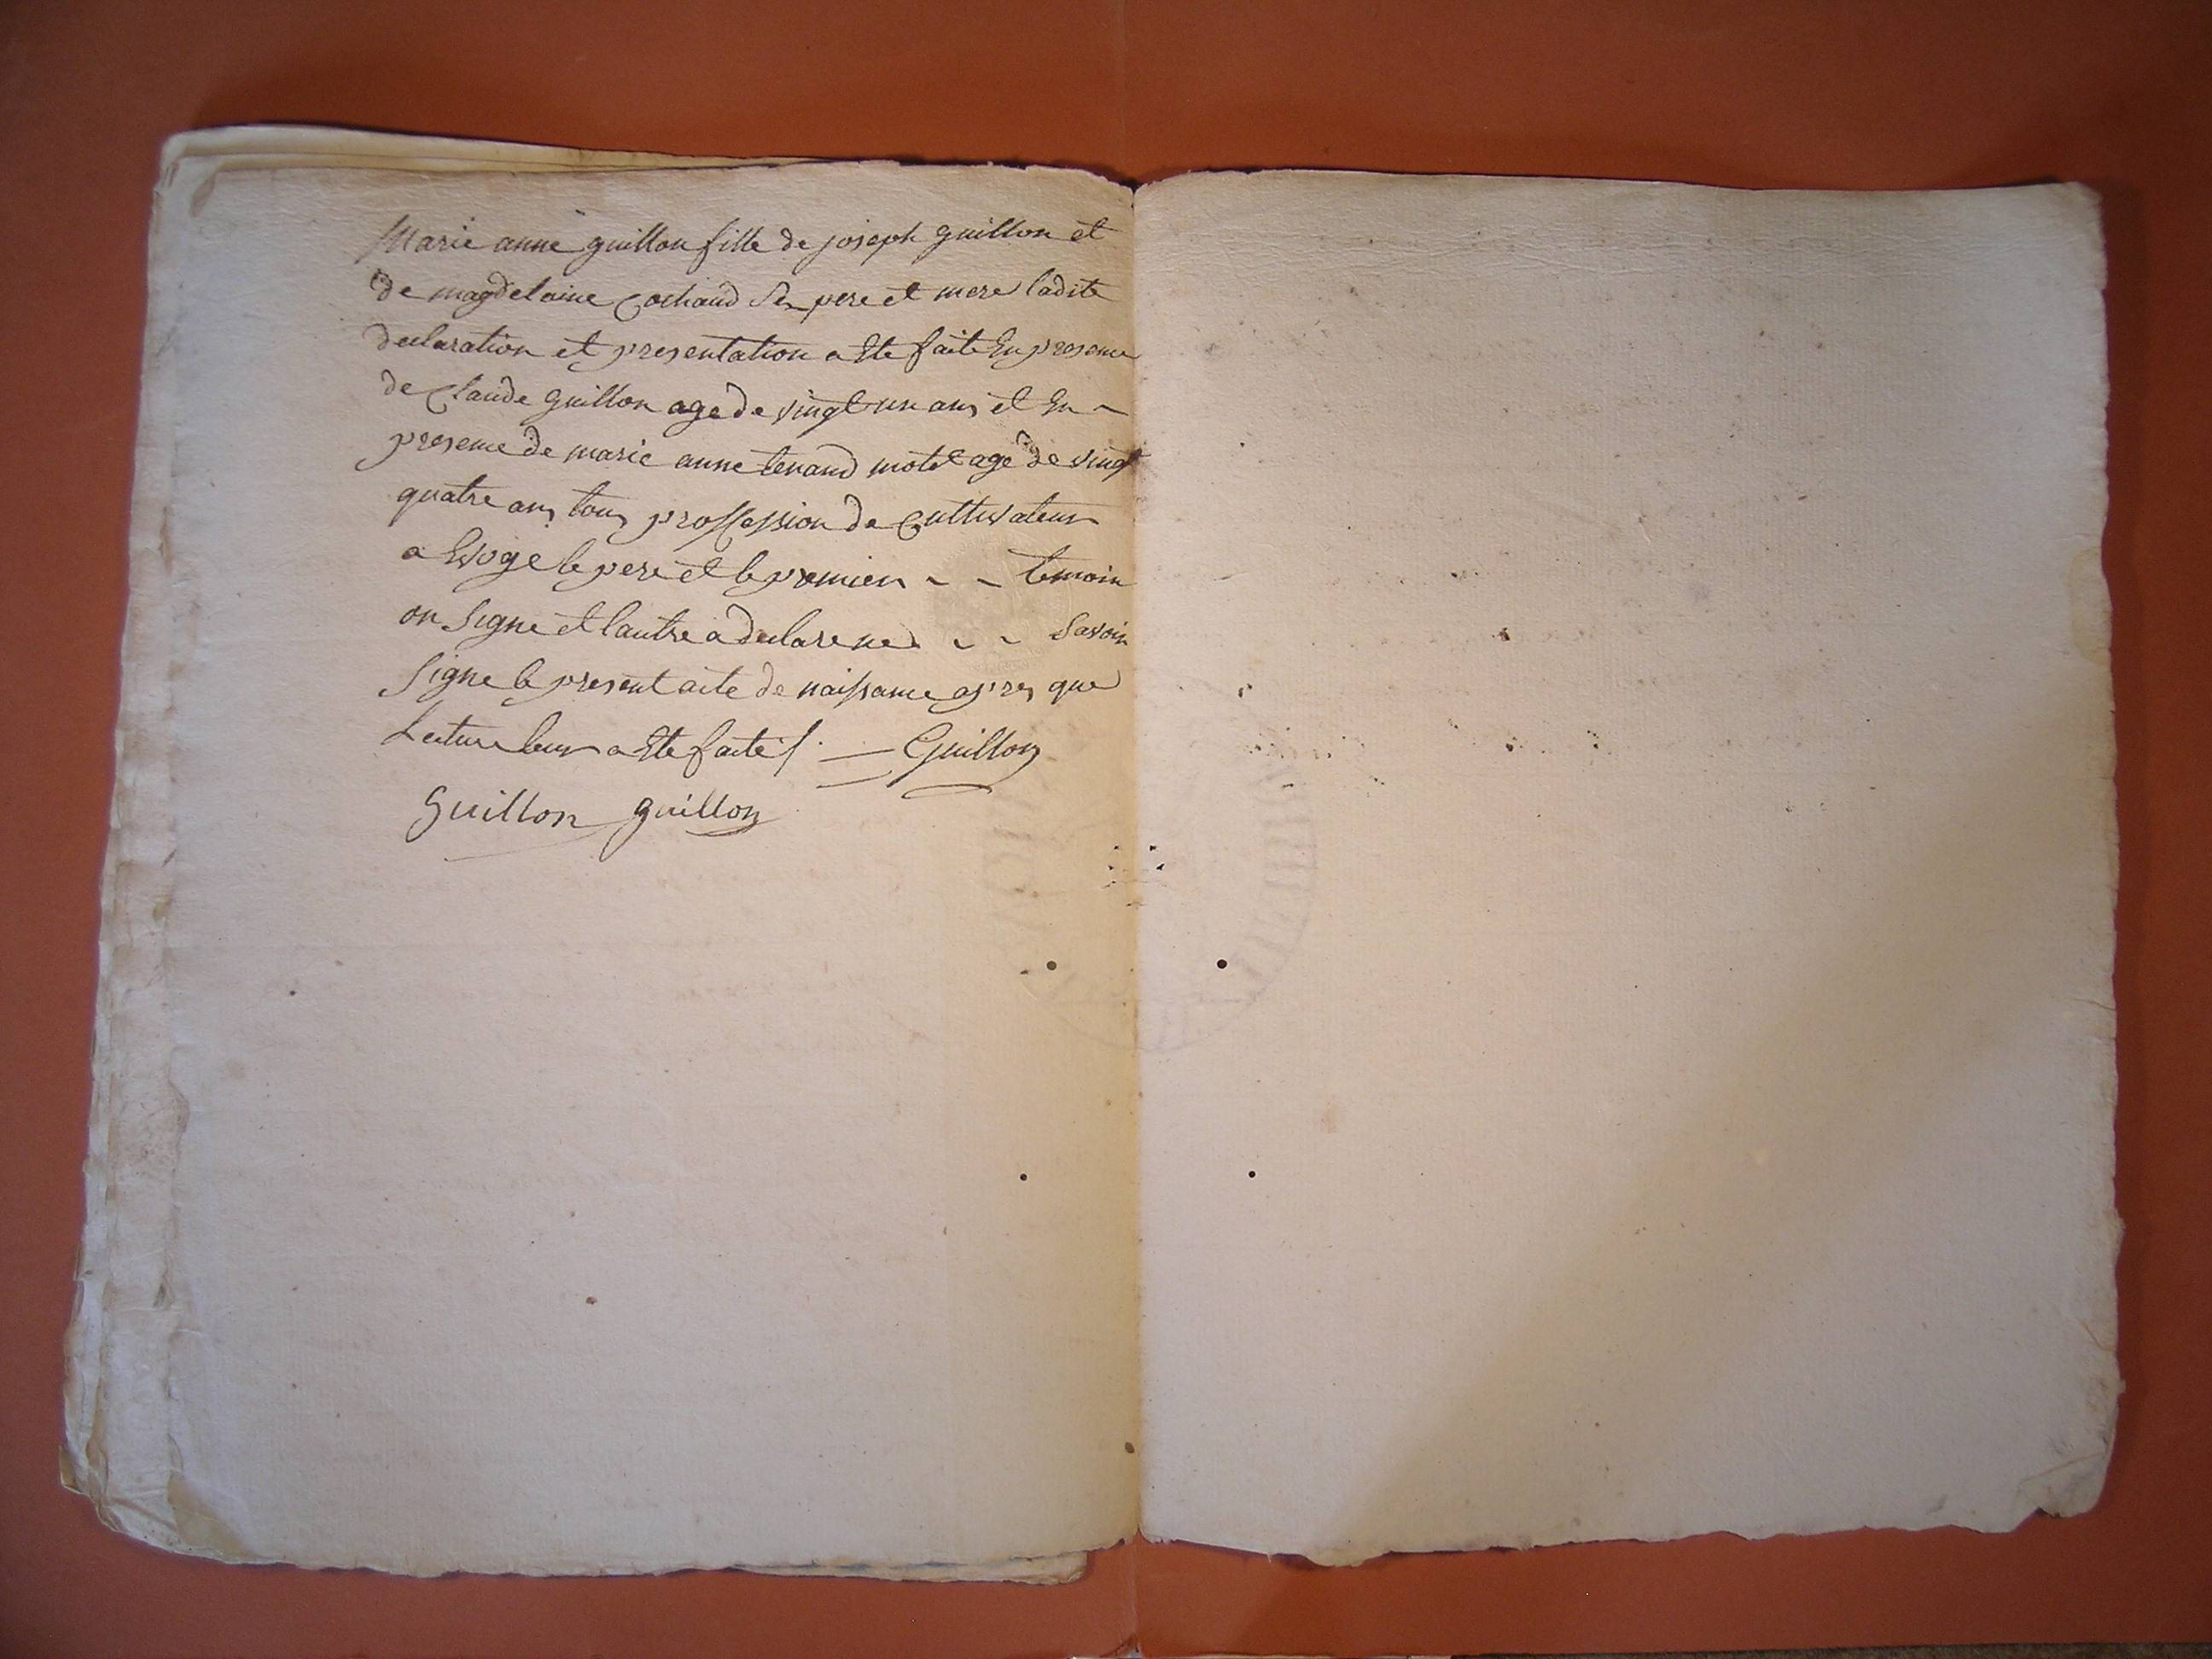 Marie anne guillon fille de joseph guillon et
de magdelaine Cochaud Ses pere et mere ladite
declaration et presentation a Ete faite En presence
de Claude guillon age de vingt un ans et En
presence de marie anne tenand motet age de vingt
quatre ans tous proffession de Cultivateur
a Evoge le pere et le premier - - temoin
on Signe et lautre a declare ne - - Savoir
Signe le present acte de naissance apres que
Lecture leur a Ete faite / . — Guillon
guillon guillon